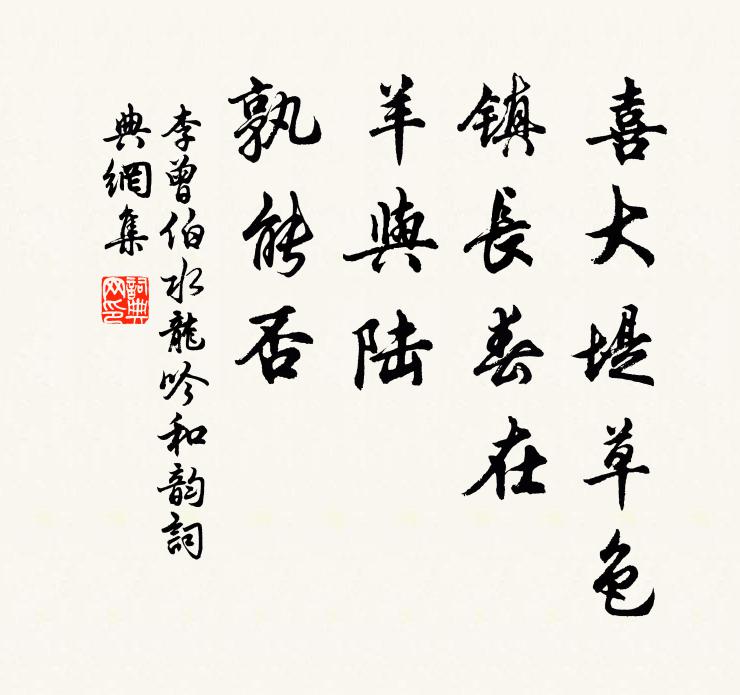 喜大堤草色
镇長春在
羊與陆
孰能否
李曾伯水龍吟和韵詞
典網集
詞典
网印